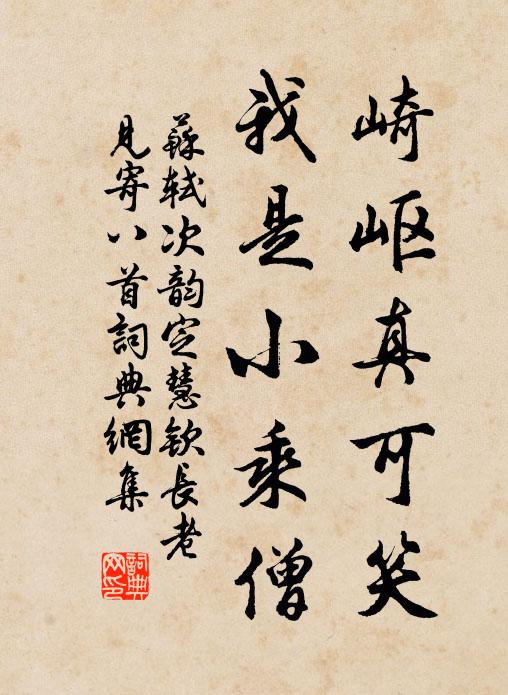 崎岖真可笑
我是小乘僧
蘇軾次韵定慧钦長老
見寄八首詞典網集
詞典
网印